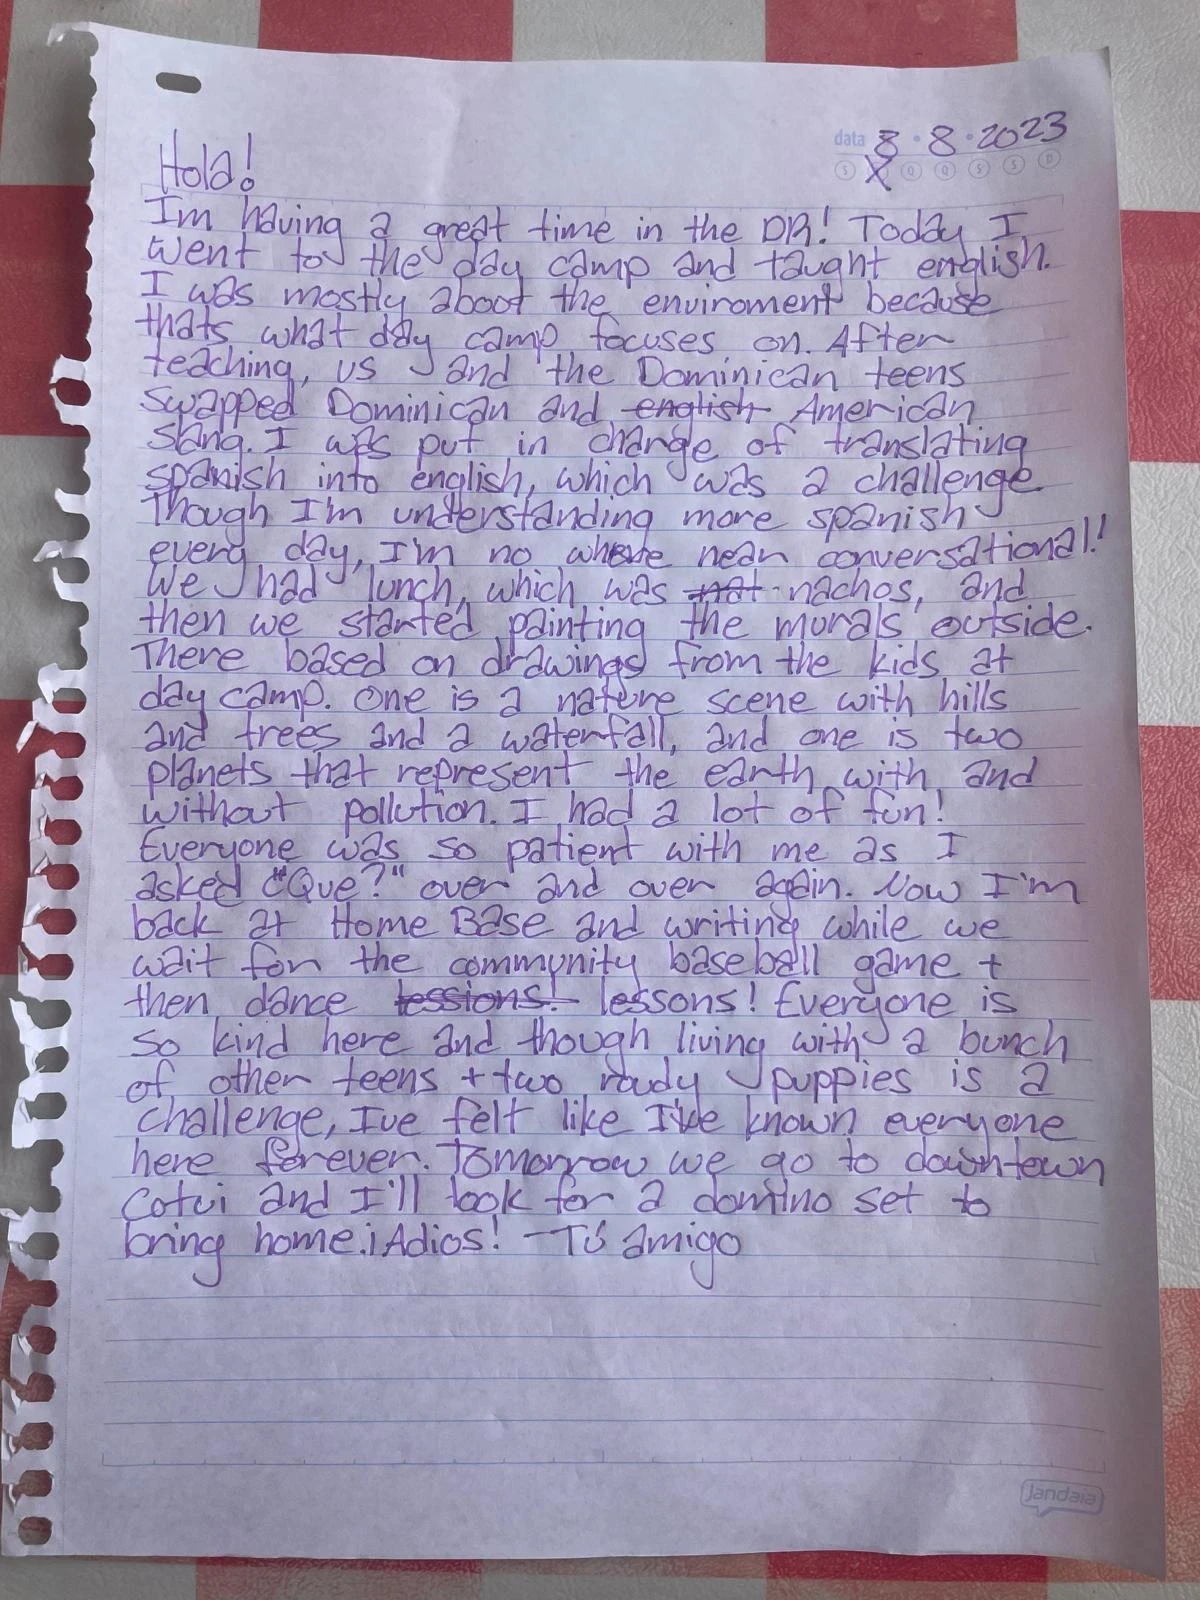 data 8 · 8 · 2023
S X Q Q S S D
Hola!
Im having a great time in the DR! Today I
went to the day camp and taught english.
I was mostly aboot the enviroment because
thats what day camp focuses on. After
teaching, us and the Dominican teens
swapped Dominican and ~~english~~ American
slang. I was put in change of translating
spanish into english, which was a challenge
Though I'm understanding more spanish
every day, I'm no where near conversational!!
We had lunch, which was ~~nat~~ nachos, and
then we started painting the murals outside.
There based on drawings from the kids at
day camp. One is a nature scene with hills
and trees and a waterfall, and one is two
planets that represent the earth with and
without pollution. I had a lot of fun!
Everyone was so patient with me as I
asked "Que?" over and over again. Now I'm
back at Home Base and writing while we
wait for the community baseball game +
then dance ~~lessions!~~ lessons! Everyone is
so kind here and though living with a bunch
of other teens + two rowdy puppies is a
challenge, Ive felt like I've known everyone
here forever. Tomorrow we go to downtown
Cotui and I'll look for a domino set to
bring home. ¡Adios! - Tú amigo
Jandaia